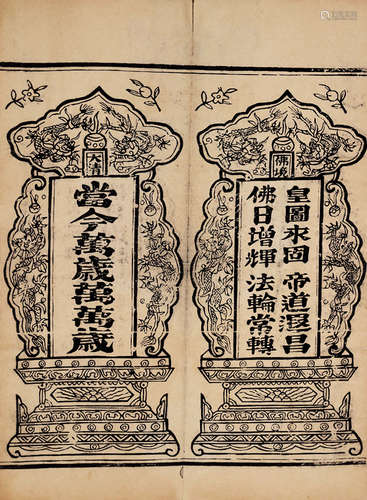 皇圖永固 帝道遐昌
佛日增輝 法輪常轉
大清
當今萬歲萬萬歲